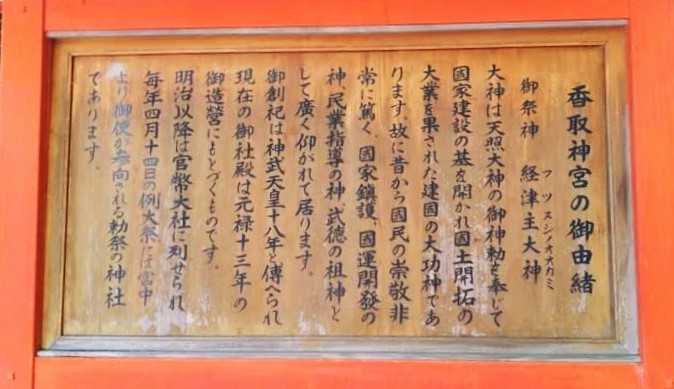 香取神宮の御由緒
フツヌシノオオカミ
御祭神　経津主大神
大神は天照大神の御神勅を奉じて
國家建設の基を開かれ國土開拓の
大業を果された建国の大功神であ
ります。故に昔から國民の崇敬非
常に篤く、國家鎮護、國運開發の
神、民業指導の神、武徳の祖神と
して廣く仰がれて居ります。
御創祀は神武天皇十八年と傳へられ
現在の御社殿は元禄十三年の
御造營にもとづくものです。
明治以降は官幣大社に列せられ
毎年四月十四日の例大祭には宮中
より御使が参向される勅祭の神社
であります。